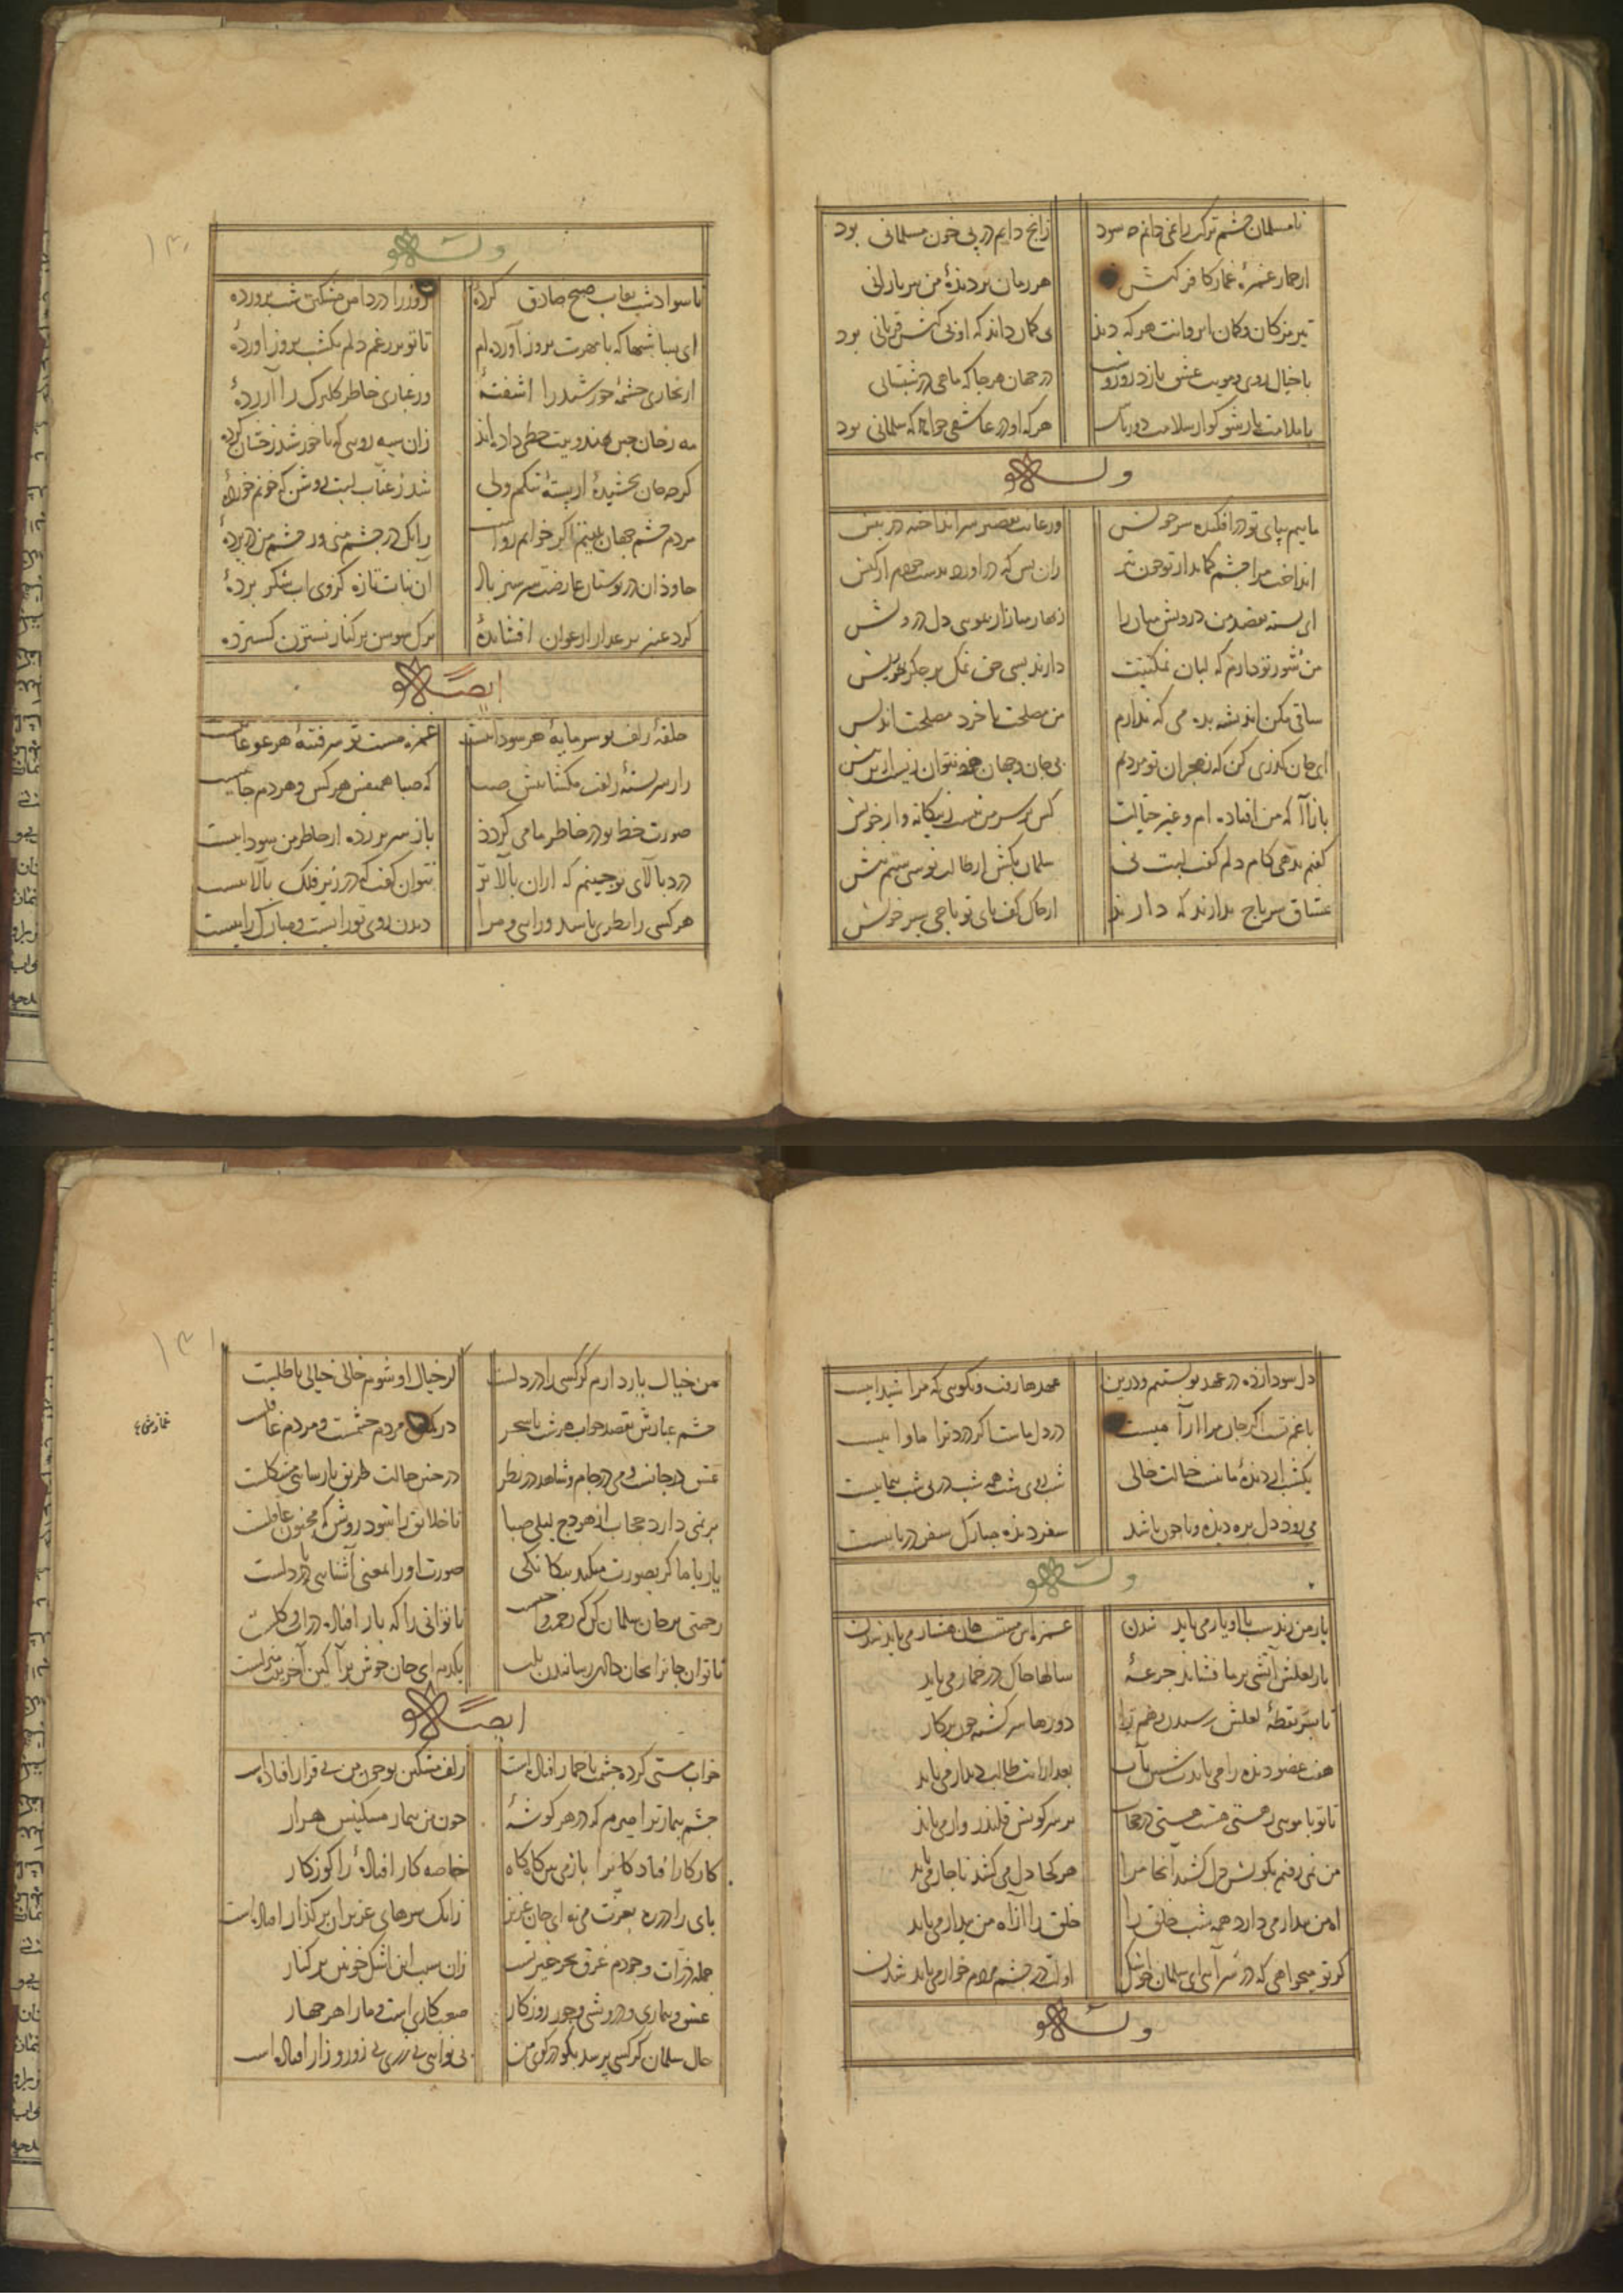 نامسلمان چشم ترکت را نمی دانم چه سود زانج دایم در پی خون مسلمانی بود
هر زمان بر دیدهٔ من سر بارانی
تیر مژکان و کمان ابروانت هر که دید کی کمان داند که او بی کیش قربانی بود
با خیال روی و مویت عشق بازد روز و شب در جهان هر جا که ماهی در شبستانی
با ملامت یار شو کو از سلامت دور باش هر که او در عاشقی خواهد که سلمانی بود
وله
ماییم بپای تو در افکنده سر خویش وز غایت تقصیر سر انداخته در پیش
انداخت مرا چشم کماندار تو چون تیر زان پس که در اورد بدست خودم از کیش
ای بسته بقصد من درویش میان را زنهار میازار بمویی دل درویش
من شور تو دارم که لبان نمکینت دارند بسی حق نمک بر جکر ریش
ساقی مکن اندیشه بده می که ندارم من مصلحت با خرد مصلحت اندیش
ای جان کذری کن که ز هجران تو مردم بی جان و جهان خود نتوان زیست ازین بیش
بازآ که من افتاده ام و غیر خیالت کس بر سر من نیست ز بیکانه و از خویش
کفتم بدهی کام دلم کفت لبت نی سلمان بکش از طالع تو سی ستم نیش
عشاق سر تاج ندارند که دارند از خاک کف پای تو تاجی بسر خویش
وله
تا سواد شب نقاب صبح صادق کردهٔ روز را در دامن مشکین شب پروردهٔ
ای بسا شبها که با مهرت بروز آورده ام تا تو بر رغم دلم یکشب بروز آوردهٔ
از بخاری چشمهٔ خورشید را اشفتهٔ وز غباری خاطر کلبرک را آزردهٔ
مه رخان چین بهندویت خطی داده اند زان سیه رویی که با خورشید رخشان کردهٔ
کرچه جان بخشیدهٔ از پستهٔ تنکم ولی شد ز عناب لبت روشن که خونم خوردهٔ
مردم چشم جهان بینم اکر خوانم رواست زانک در چشم منی ور چشم من در پردهٔ
جاودان در بوستان عارضت سرسبز باد آن نبات تازه کز وی اب شکر بردهٔ
کرد عنبر بر عذار ارغوان افشاندهٔ برک سوسن بر کنار نسترن کستردهٔ
ایضا له
حلقهٔ زلف تو سرمایهٔ هر سوداییست غمزهٔ مست تو سر فتنهٔ هر غوغاییست
راز سربستهٔ زلفت مکشا پیش صبا که صبا همنفس هر کس و هر دم جاییست
صورت خط تو در خاطر ما می کردد باز سر بر زده از خاطر من سوداییست
درد بالای تو چینم که ازان بالاتر نتوان کفت که در زیر فلک بالاییست
هر کسی را نظری باشد و رایی و مرا دیدن روی تو راییست و مبارک راییست
دل سودازده در عهد تو بستیم و درین عهدها رفت و نکویی که مرا شیداییست
با غم تست اکر جان مرا آرامیست در دل ماست اکر درد ترا ماواییست
یکشب از دیدهٔ ما نیست خیالت خالی
می رود دل بره دیده و تا چون باشد سفر دیده مبارک سفر دریاییست
وله
یار من رندست با او یار می باید شدن غمزه اش مستست جان هشیار می باید شدن
یا ز لعلش آتشی بر ما فشاند جرعهٔ سالها خاک در خمار می باید
تا بسر نقطهٔ لعلش رسیدن دورها سرکشته چون پرکار
هفت عضو دیده را می باید شستن بآب بعد ازانت طالب دیدار می باید
بر سر کویش قلندر وار می باید
من نمی رفتم بکویش دل کشید آنجا مرا هر کجا دل می کشد ناچار می باید
اه من بیدار می دارد همه شب خلق را خلق را از آه من بیدار می باید
کر تو میخواهی که در سر آیی ای سلمان چو اشک اولت در چشم مردم خوار می باید شدن
وله
من خیال یار دارم کر کسی را در دلست کز خیال او شوم خالی خیالی باطلست
چشم عیارش بقصد خواب هر شب تا سحر در کمین مردم چشمست و مردم غافلست
عشق در جانست و می در جام و شاهد در نظر در چنین حالت طریق پارسایی مشکلست
بر نمی دارد حجاب از هودج لیلی صبا تا خلایق را شود روشن که مجنون عاقلست
یار با ما کر بصورت میکند بیکانکی صورت او را بمعنی آشنایی با دلست
رحمتی بر جان سلمان کن که رحمت واجبست ناتوانی را که بار افتاده در آب و کلست
ناتوان جانرا بجان دادن رسانیدن بلب یکدمه ای جان خوش برآ کین آخرین منزلست
غماز من ع
ایضا له
خواب مستی کرده چشمت با خمار افتاده است زلف مشکین تو چون من بی قرار افتاده است
چشم بیمار ترا میرم که در هر کوشهٔ چون من بیمار مسکینش هزار
کار کار افتادکانرا باز می بین کاه کاه خاصه کار افتادهٔ را کو ز کار
پای را در ره بعزت می نه ای جان عزیز زانک سرهای عزیزان بر کذار افتاده است
جمله ذرات وجودم غرق بحر حیرتست زان سبب این اشک خونین بر کنار
عشق و بیماری و درویشی و جور روزکار صعب کاریست و ما را هر چهار
حال سلمان کر کسی پرسد بکو در کوی من بی نوایی بی زری بی زور و زار افتاده است